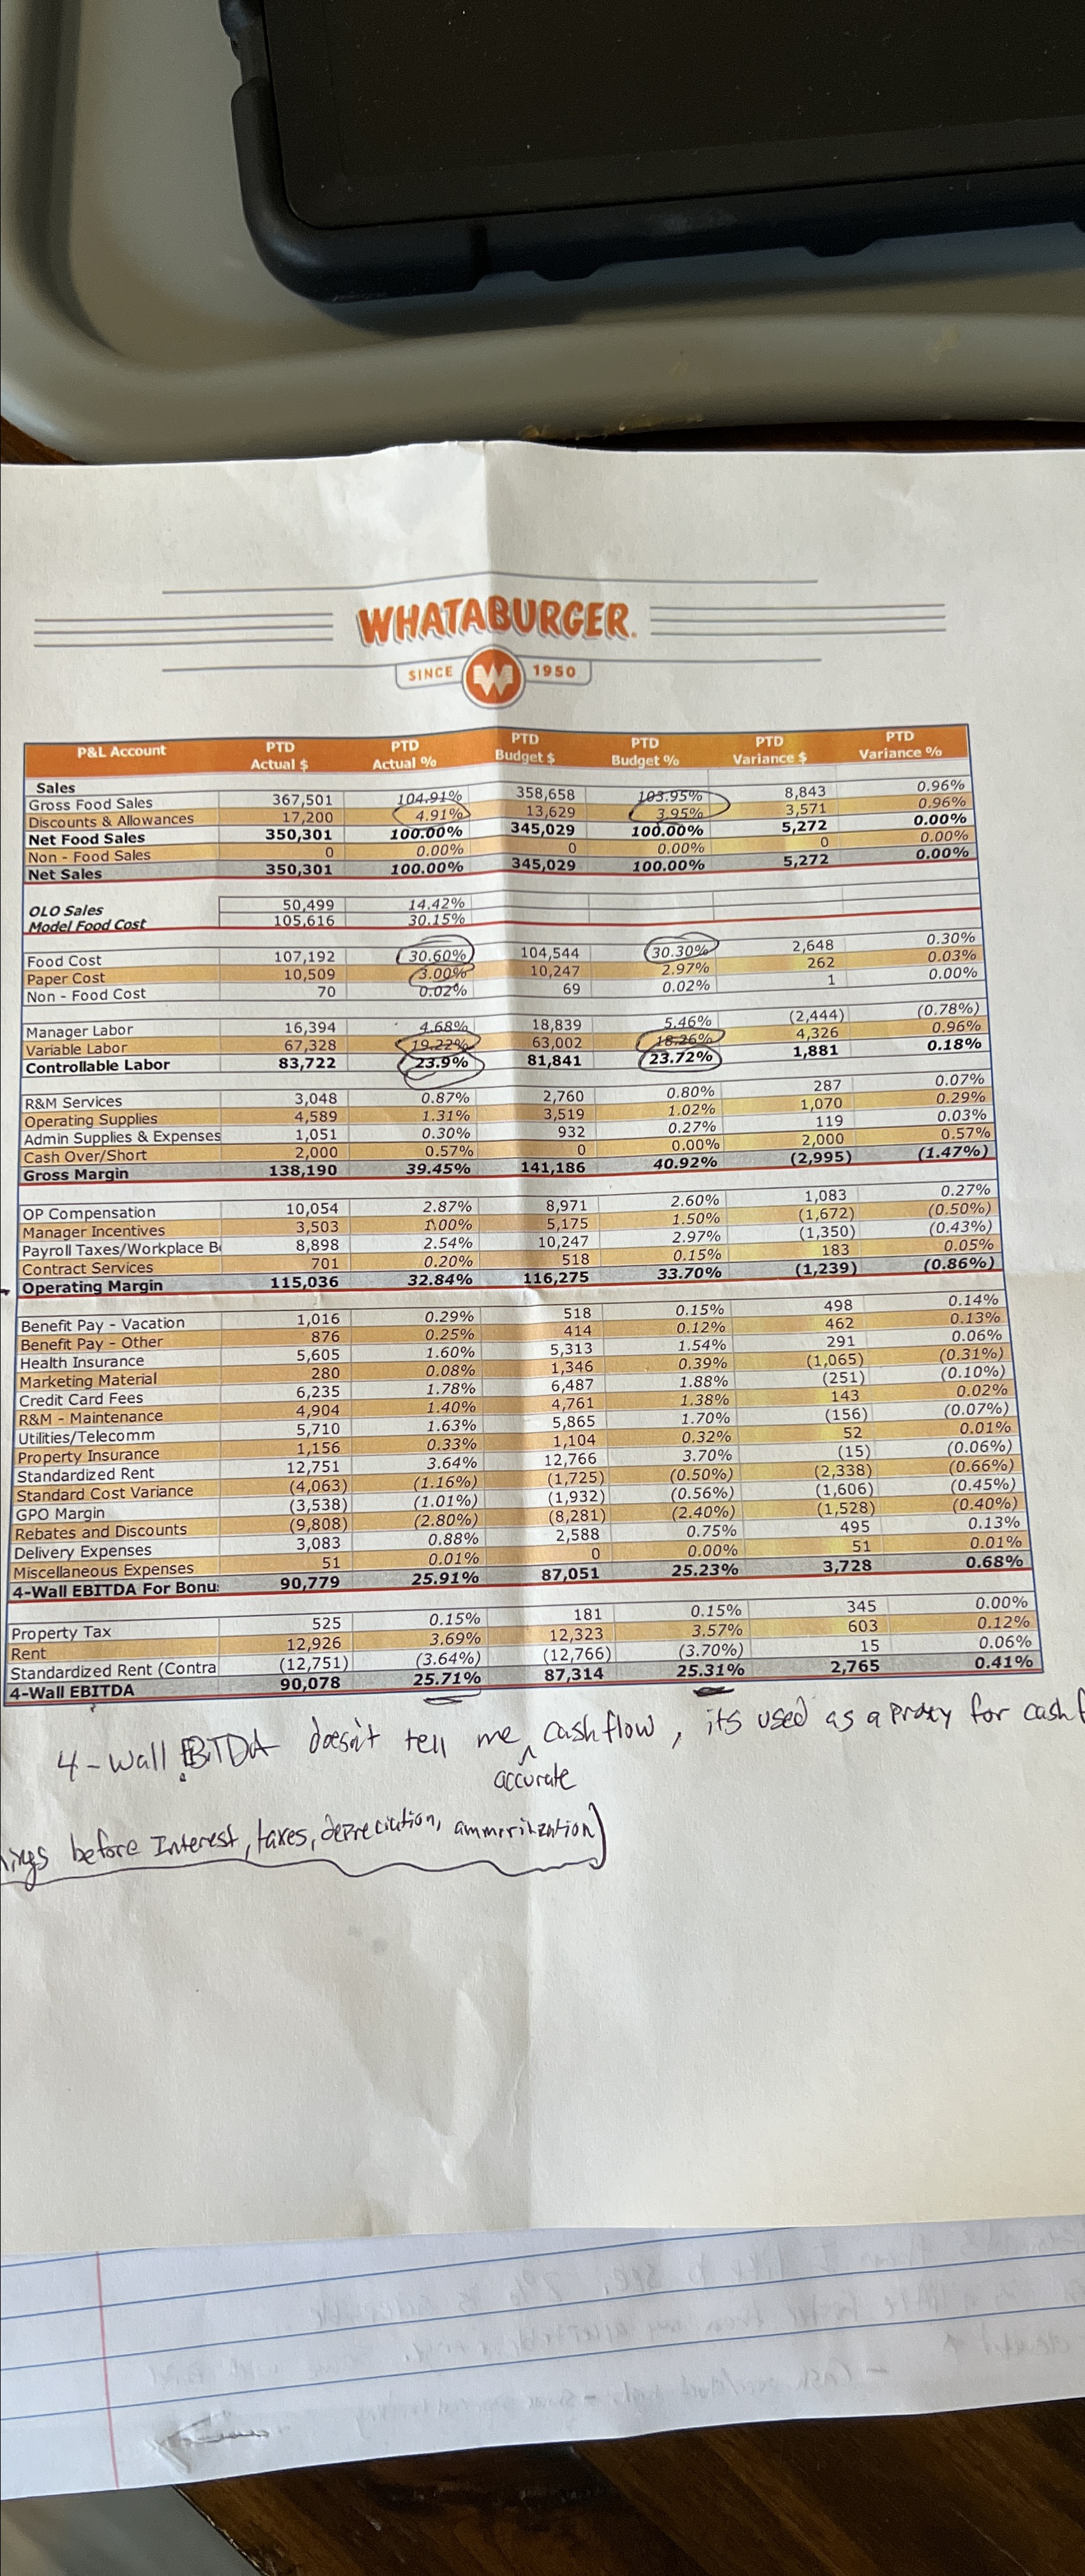 WHATABURGER
SINCE W 1950
P&L Account PTD Actual $ PTD Actual % PTD Budget $ PTD Budget % PTD Variance $ PTD Variance %
Sales
Gross Food Sales 367,501 104.91% 358,658 103.95% 8,843 0.96%
Discounts & Allowances 17,200 4.91% 13,629 3.95% 3,571 0.96%
Net Food Sales 350,301 100.00% 345,029 100.00% 5,272 0.00%
Non - Food Sales 0 0.00% 0 0.00% 0 0.00%
Net Sales 350,301 100.00% 345,029 100.00% 5,272 0.00%
OLO Sales 50,499 14.42%
Model Food Cost 105,616 30.15%
Food Cost 107,192 30.60% 104,544 30.30% 2,648 0.30%
Paper Cost 10,509 3.00% 10,247 2.97% 262 0.03%
Non - Food Cost 70 0.02% 69 0.02% 1 0.00%
Manager Labor 16,394 4.68% 18,839 5.46% (2,444) (0.78%)
Variable Labor 67,328 19.22% 63,002 18.26% 4,326 0.96%
Controllable Labor 83,722 23.9% 81,841 23.72% 1,881 0.18%
R&M Services 3,048 0.87% 2,760 0.80% 287 0.07%
Operating Supplies 4,589 1.31% 3,519 1.02% 1,070 0.29%
Admin Supplies & Expenses 1,051 0.30% 932 0.27% 119 0.03%
Cash Over/Short 2,000 0.57% 0 0.00% 2,000 0.57%
Gross Margin 138,190 39.45% 141,186 40.92% (2,995) (1.47%)
OP Compensation 10,054 2.87% 8,971 2.60% 1,083 0.27%
Manager Incentives 3,503 1.00% 5,175 1.50% (1,672) (0.50%)
Payroll Taxes/Workplace B 8,898 2.54% 10,247 2.97% (1,350) (0.43%)
Contract Services 701 0.20% 518 0.15% 183 0.05%
Operating Margin 115,036 32.84% 116,275 33.70% (1,239) (0.86%)
Benefit Pay - Vacation 1,016 0.29% 518 0.15% 498 0.14%
Benefit Pay - Other 876 0.25% 414 0.12% 462 0.13%
Health Insurance 5,605 1.60% 5,313 1.54% 291 0.06%
Marketing Material 280 0.08% 1,346 0.39% (1,065) (0.31%)
Credit Card Fees 6,235 1.78% 6,487 1.88% (251) (0.10%)
R&M - Maintenance 4,904 1.40% 4,761 1.38% 143 0.02%
Utilities/Telecomm 5,710 1.63% 5,865 1.70% (156) (0.07%)
Property Insurance 1,156 0.33% 1,104 0.32% 52 0.01%
Standardized Rent 12,751 3.64% 12,766 3.70% (15) (0.06%)
Standard Cost Variance (4,063) (1.16%) (1,725) (0.50%) (2,338) (0.66%)
GPO Margin (3,538) (1.01%) (1,932) (0.56%) (1,606) (0.45%)
Rebates and Discounts (9,808) (2.80%) (8,281) (2.40%) (1,528) (0.40%)
Delivery Expenses 3,083 0.88% 2,588 0.75% 495 0.13%
Miscellaneous Expenses 51 0.01% 0 0.00% 51 0.01%
4-Wall EBITDA For Bonu 90,779 25.91% 87,051 25.23% 3,728 0.68%
Property Tax 525 0.15% 181 0.15% 345 0.00%
Rent 12,926 3.69% 12,323 3.57% 603 0.12%
Standardized Rent (Contra (12,751) (3.64%) (12,766) (3.70%) 15 0.06%
4-Wall EBITDA 90,078 25.71% 87,314 25.31% 2,765 0.41%
4-Wall EBITDA doesn't tell me accurate cashflow, its used as a proxy for cash
before Interest, taxes, depreciation, ammoritization)